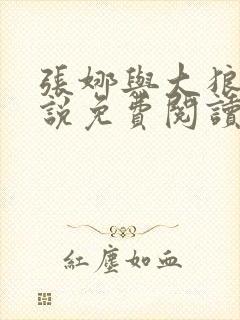 張娜與大狼
說免費閱讀
紅塵如血